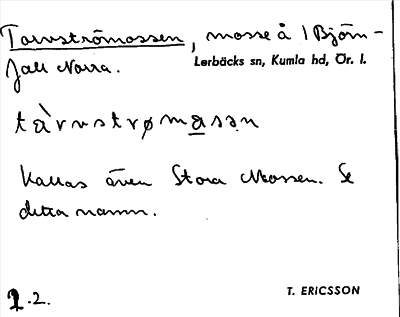 Torvströmossen, mosse å 1 Björn-
fall Norra.
Lerbäcks sn, Kumla hd, Ör. l.
tàrvstrømasən
Kallas även Stora Mossen. Se
detta namn.
1.2.
T. ERICSSON